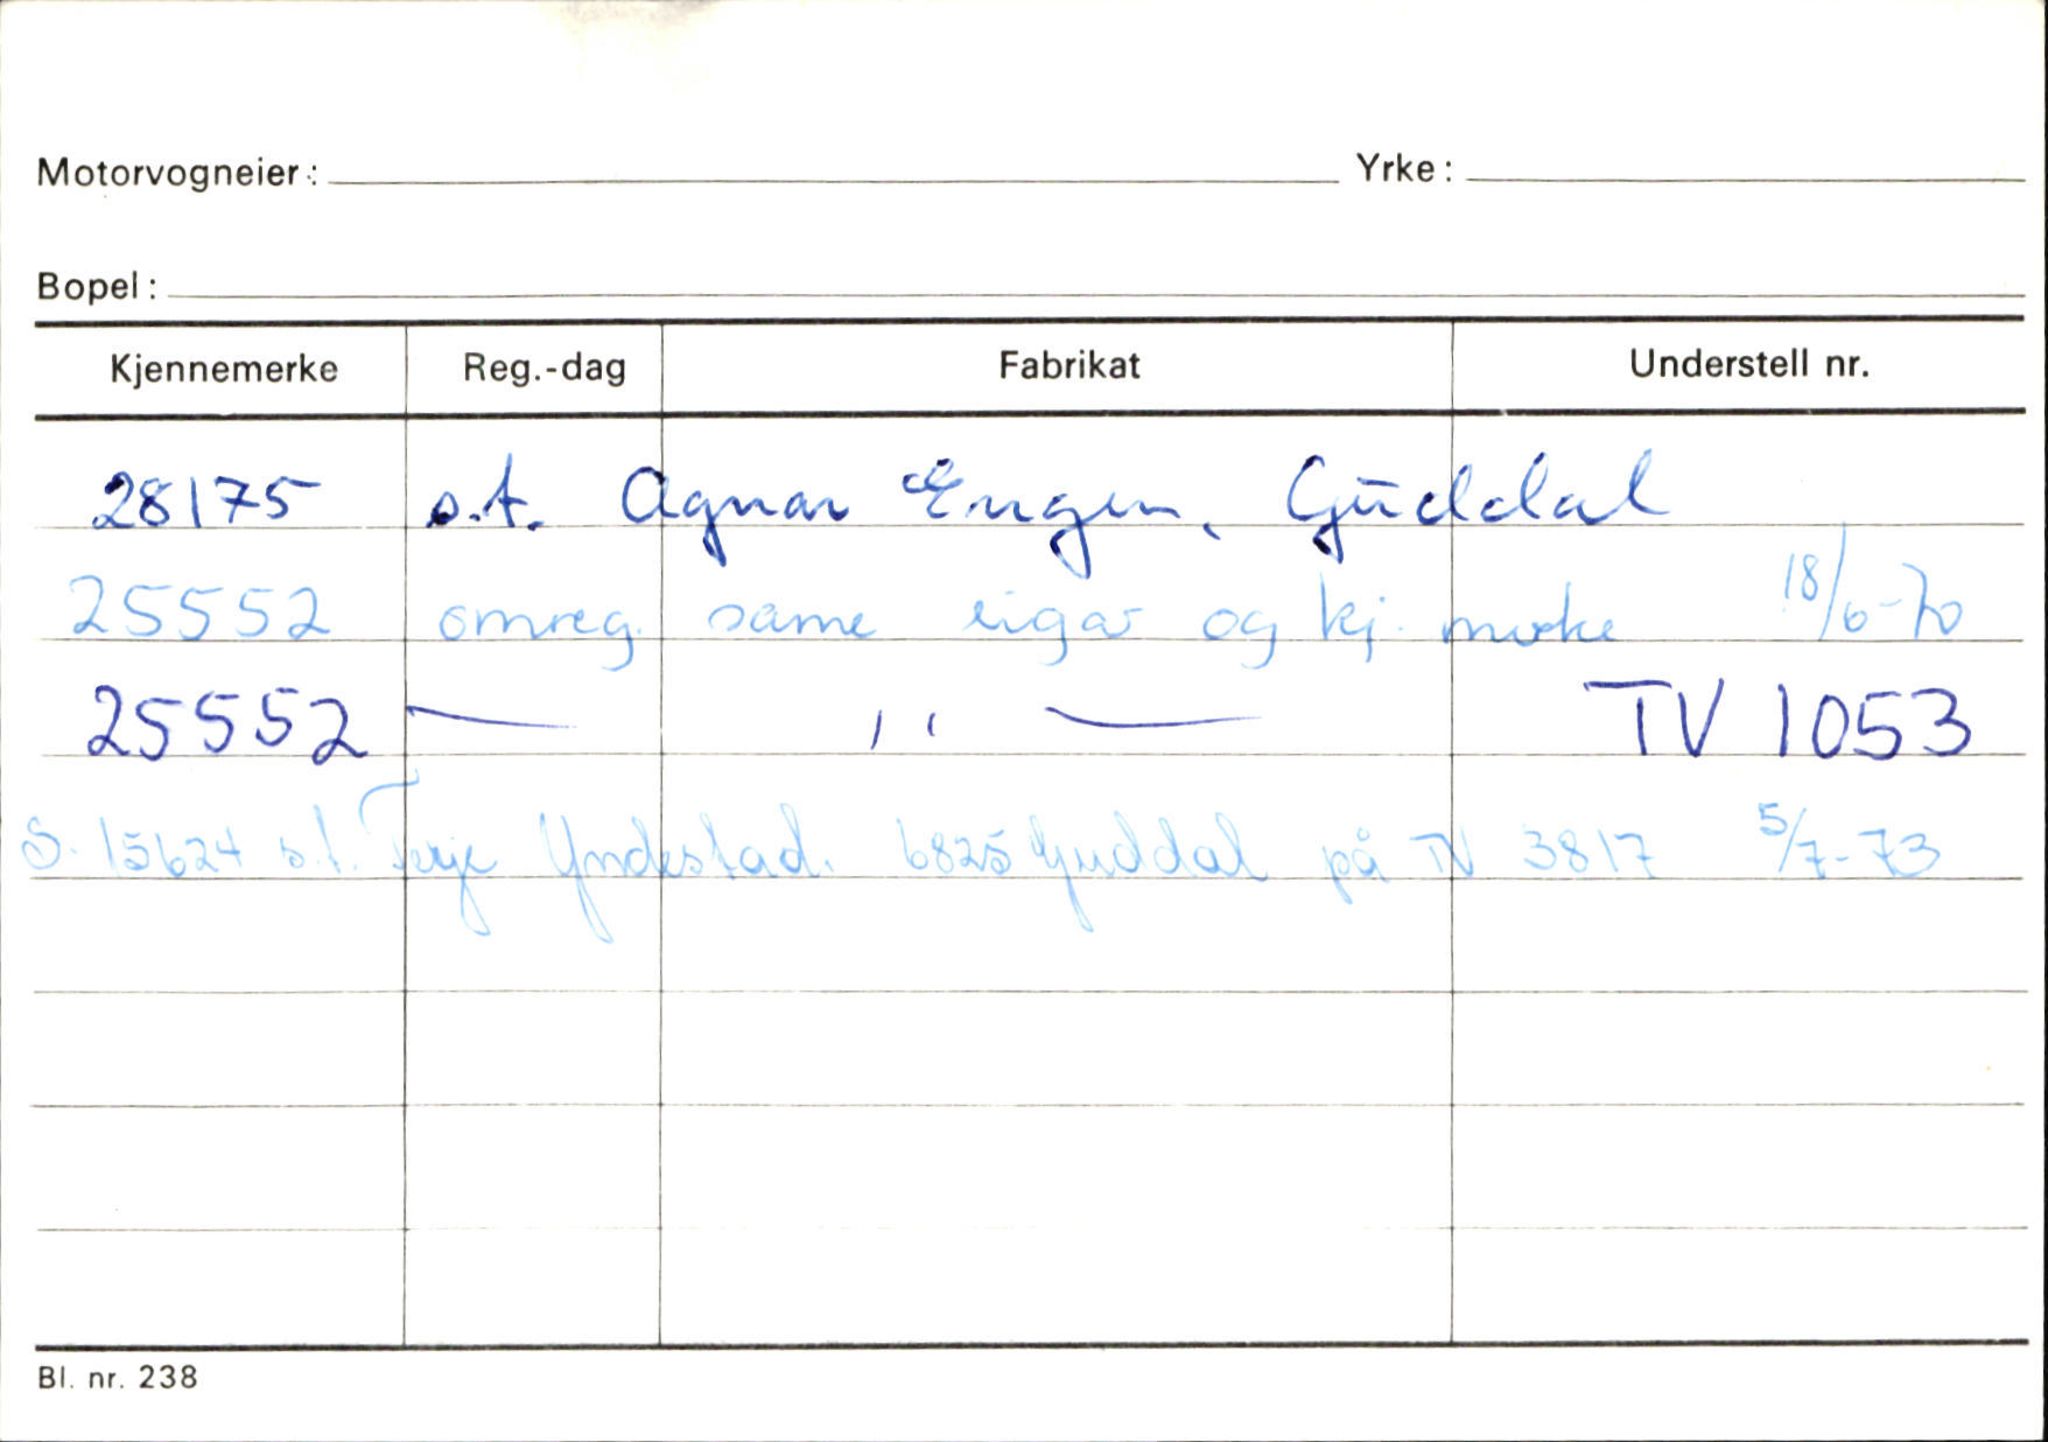 Motorvogneier: Yrke:
Bopel:
Kjennemerke Reg.-dag Fabrikat Understell nr.
28175 s.t. Agnar Engen, Guddal
25552 omreg. same eigar og kj. merke 18/6-70
25552 — ,, — TV 1053
S. 15624 s.t. Terje Yndestad. 6825 Guddal på TV 3817 5/7-73
Bl. nr. 238